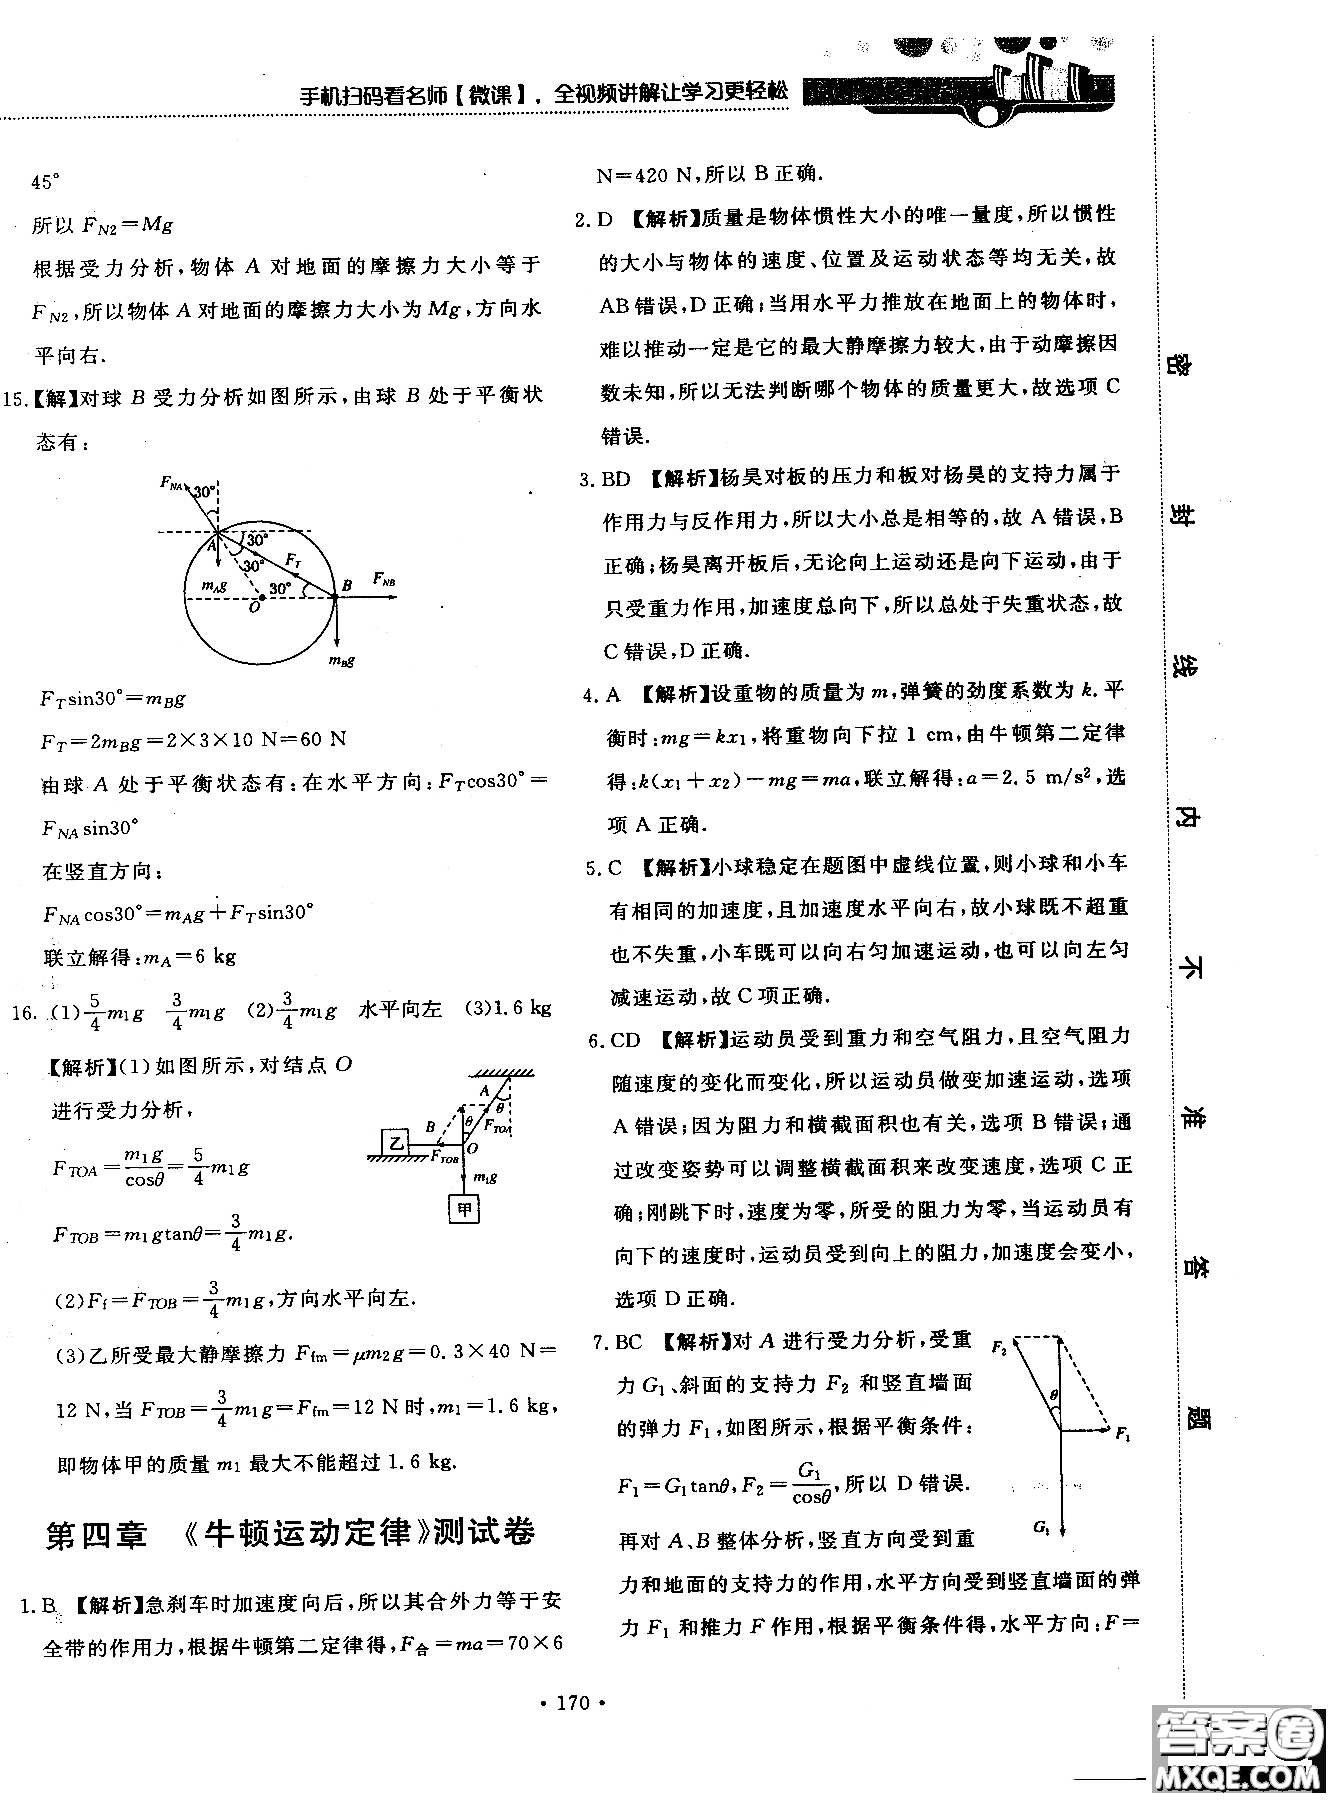 手机扫码看名师【微课】，全视频讲解让学习更轻松
45°
所以 F_{N2}=Mg
根据受力分析,物体 A 对地面的摩擦力大小等于
F_{N2},所以物体 A 对地面的摩擦力大小为 Mg,方向水
平向右.
15.【解】对球 B 受力分析如图所示,由球 B 处于平衡状
态有:
F_{NA} 30°
A 30° 30° F_T
m_Ag O 30° B F_{NB}
m_Bg
F_T sin30°=m_Bg
F_T=2m_Bg=2×3×10 N=60 N
由球 A 处于平衡状态有:在水平方向:F_T cos30°=
F_{NA} sin30°
在竖直方向:
F_{NA} cos30°=m_Ag+F_T sin30°
联立解得:m_A=6 kg
16. (1) 5/4 m_1g 3/4 m_1g (2) 3/4 m_1g 水平向左 (3)1.6 kg
【解析】(1)如图所示,对结点 O
进行受力分析,
F_{TOA}=m_1g/cosθ=5/4 m_1g
F_{TOB}=m_1gtanθ=3/4 m_1g.
A θ
B θ F_{TOA}
乙 F_{TOB} O
m_1g
甲
(2)F_f=F_{TOB}=3/4 m_1g,方向水平向左.
(3)乙所受最大静摩擦力 F_{fm}=μm_2g=0.3×40 N=
12 N,当 F_{TOB}=3/4 m_1g=F_{fm}=12 N 时,m_1=1.6 kg,
即物体甲的质量 m_1 最大不能超过 1.6 kg.
第四章 《牛顿运动定律》测试卷
1. B 【解析】急刹车时加速度向后,所以其合外力等于安
全带的作用力,根据牛顿第二定律得,F_合=ma=70×6
N=420 N,所以 B 正确.
2. D 【解析】质量是物体惯性大小的唯一量度,所以惯性
的大小与物体的速度、位置及运动状态等均无关,故
AB 错误,D 正确;当用水平力推放在地面上的物体时,
难以推动一定是它的最大静摩擦力较大,由于动摩擦因
数未知,所以无法判断哪个物体的质量更大,故选项 C
错误.
3. BD 【解析】杨昊对板的压力和板对杨昊的支持力属于
作用力与反作用力,所以大小总是相等的,故 A 错误,B
正确;杨昊离开板后,无论向上运动还是向下运动,由于
只受重力作用,加速度总向下,所以总处于失重状态,故
C 错误,D 正确.
4. A 【解析】设重物的质量为 m,弹簧的劲度系数为 k.平
衡时:mg=kx_1,将重物向下拉 1 cm,由牛顿第二定律
得:k(x_1+x_2)-mg=ma,联立解得:a=2.5 m/s²,选
项 A 正确.
5. C 【解析】小球稳定在题图中虚线位置,则小球和小车
有相同的加速度,且加速度水平向右,故小球既不超重
也不失重,小车既可以向右匀加速运动,也可以向左匀
减速运动,故 C 项正确.
6. CD 【解析】运动员受到重力和空气阻力,且空气阻力
随速度的变化而变化,所以运动员做变加速运动,选项
A 错误;因为阻力和横截面积也有关,选项 B 错误;通
过改变姿势可以调整横截面积来改变速度,选项 C 正
确;刚跳下时,速度为零,所受的阻力为零,当运动员有
向下的速度时,运动员受到向上的阻力,加速度会变小,
选项 D 正确.
7. BC 【解析】对 A 进行受力分析,受重
力 G_1、斜面的支持力 F_2 和竖直墙面
的弹力 F_1,如图所示,根据平衡条件:
F_1=G_1tanθ,F_2=G_1/cosθ,所以 D 错误.
再对 A、B 整体分析,竖直方向受到重
力和地面的支持力的作用,水平方向受到竖直墙面的弹
力 F_1 和推力 F 作用,根据平衡条件得,水平方向:F=
F_2
θ
F_1
G_1
密
封
线
内
不
准
答
题
• 170 •
答案圈
MXQE.COM